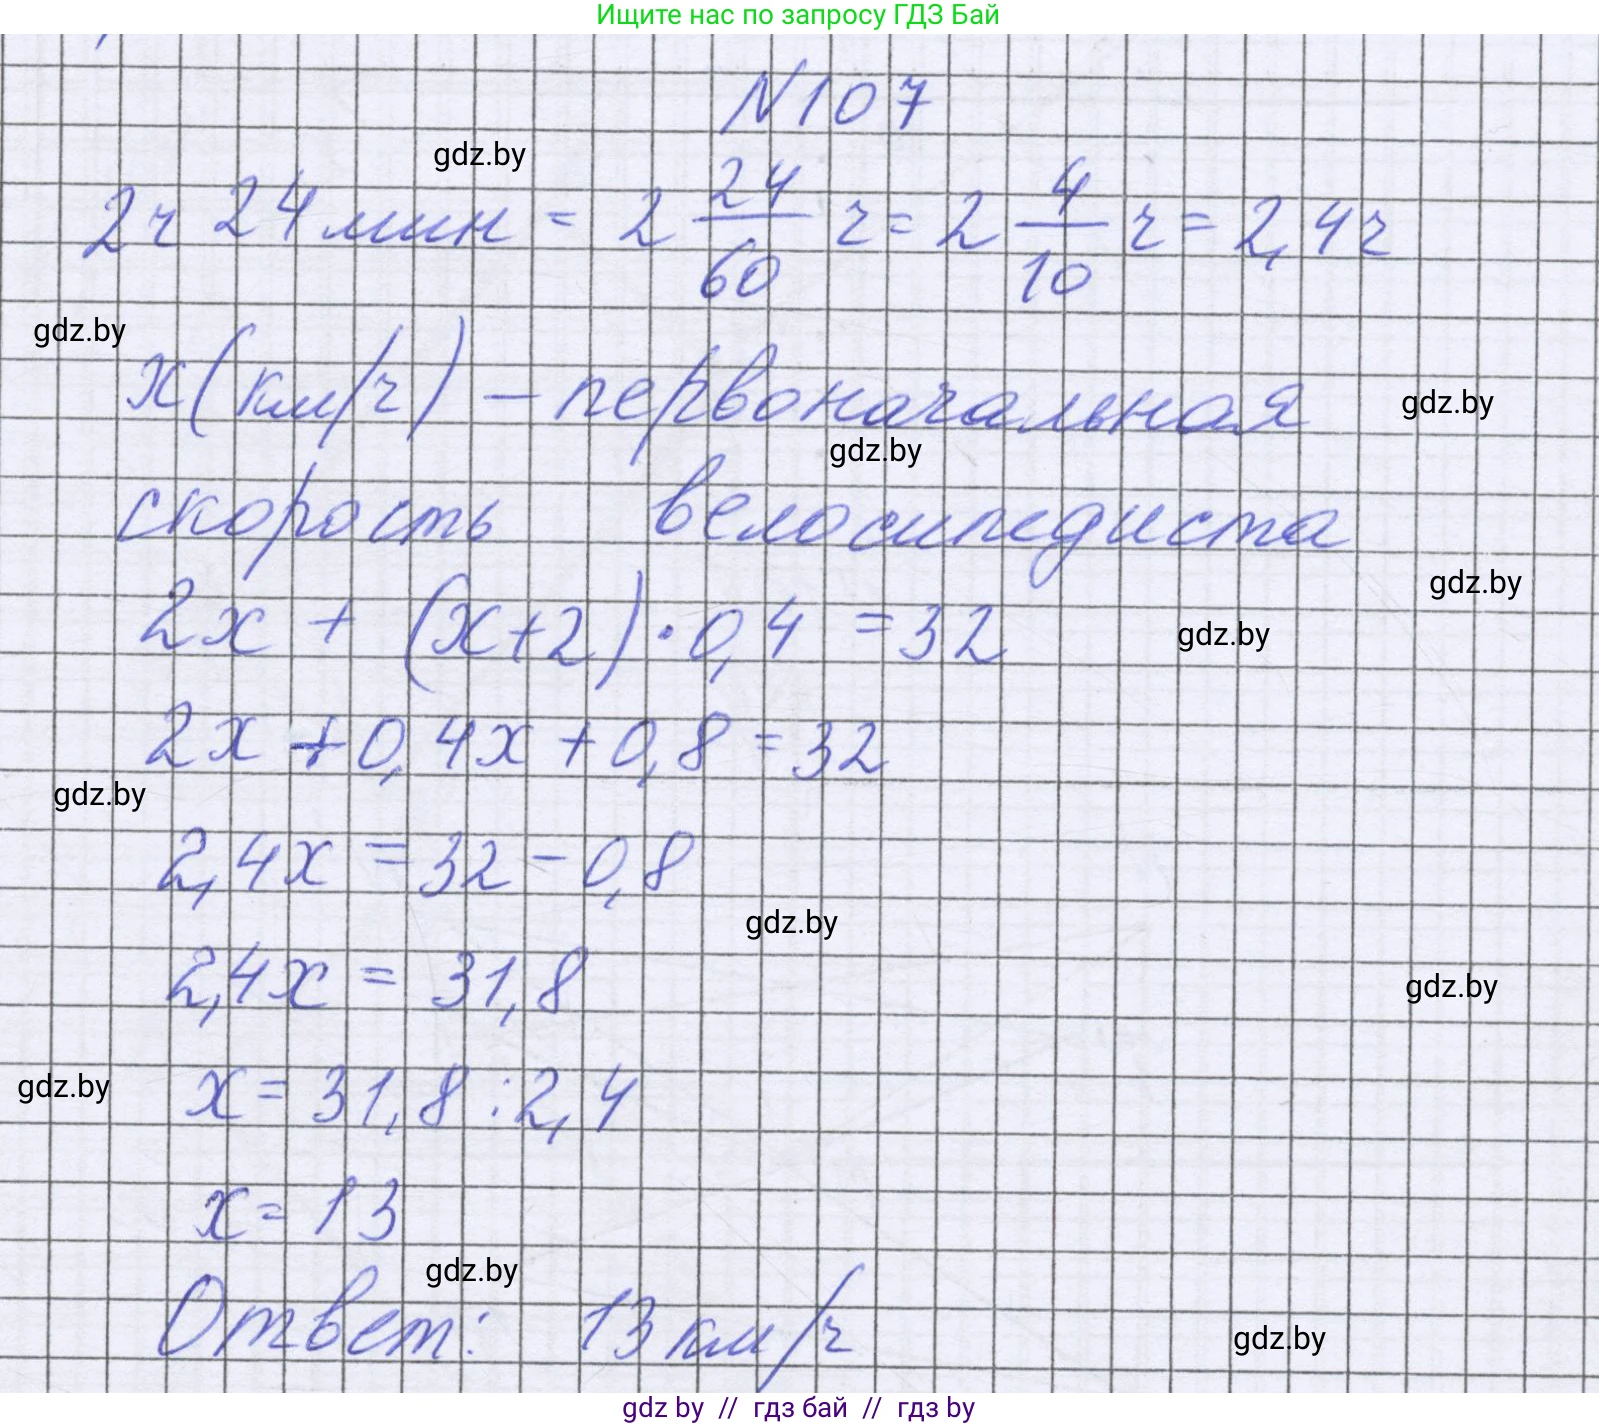 Ищите нас по запросу ГДЗ Бай
N107
gdz.by
2ч 24 мин = 2 24/60 ч = 2 4/10 ч = 2,4ч
gdz.by
x (км/ч) - первоначальная
gdz.by
gdz.by
скорость велосипедиста
gdz.by
2x + (x+2)·0,4 = 32
gdz.by
2x + 0,4x + 0,8 = 32
gdz.by
2,4x = 32 - 0,8
gdz.by
2,4x = 31,8
gdz.by
gdz.by
x = 31,8 : 2,4
x = 13
gdz.by
Ответ: 13 км/ч
gdz.by
gdz by // гдз бай // гдз by